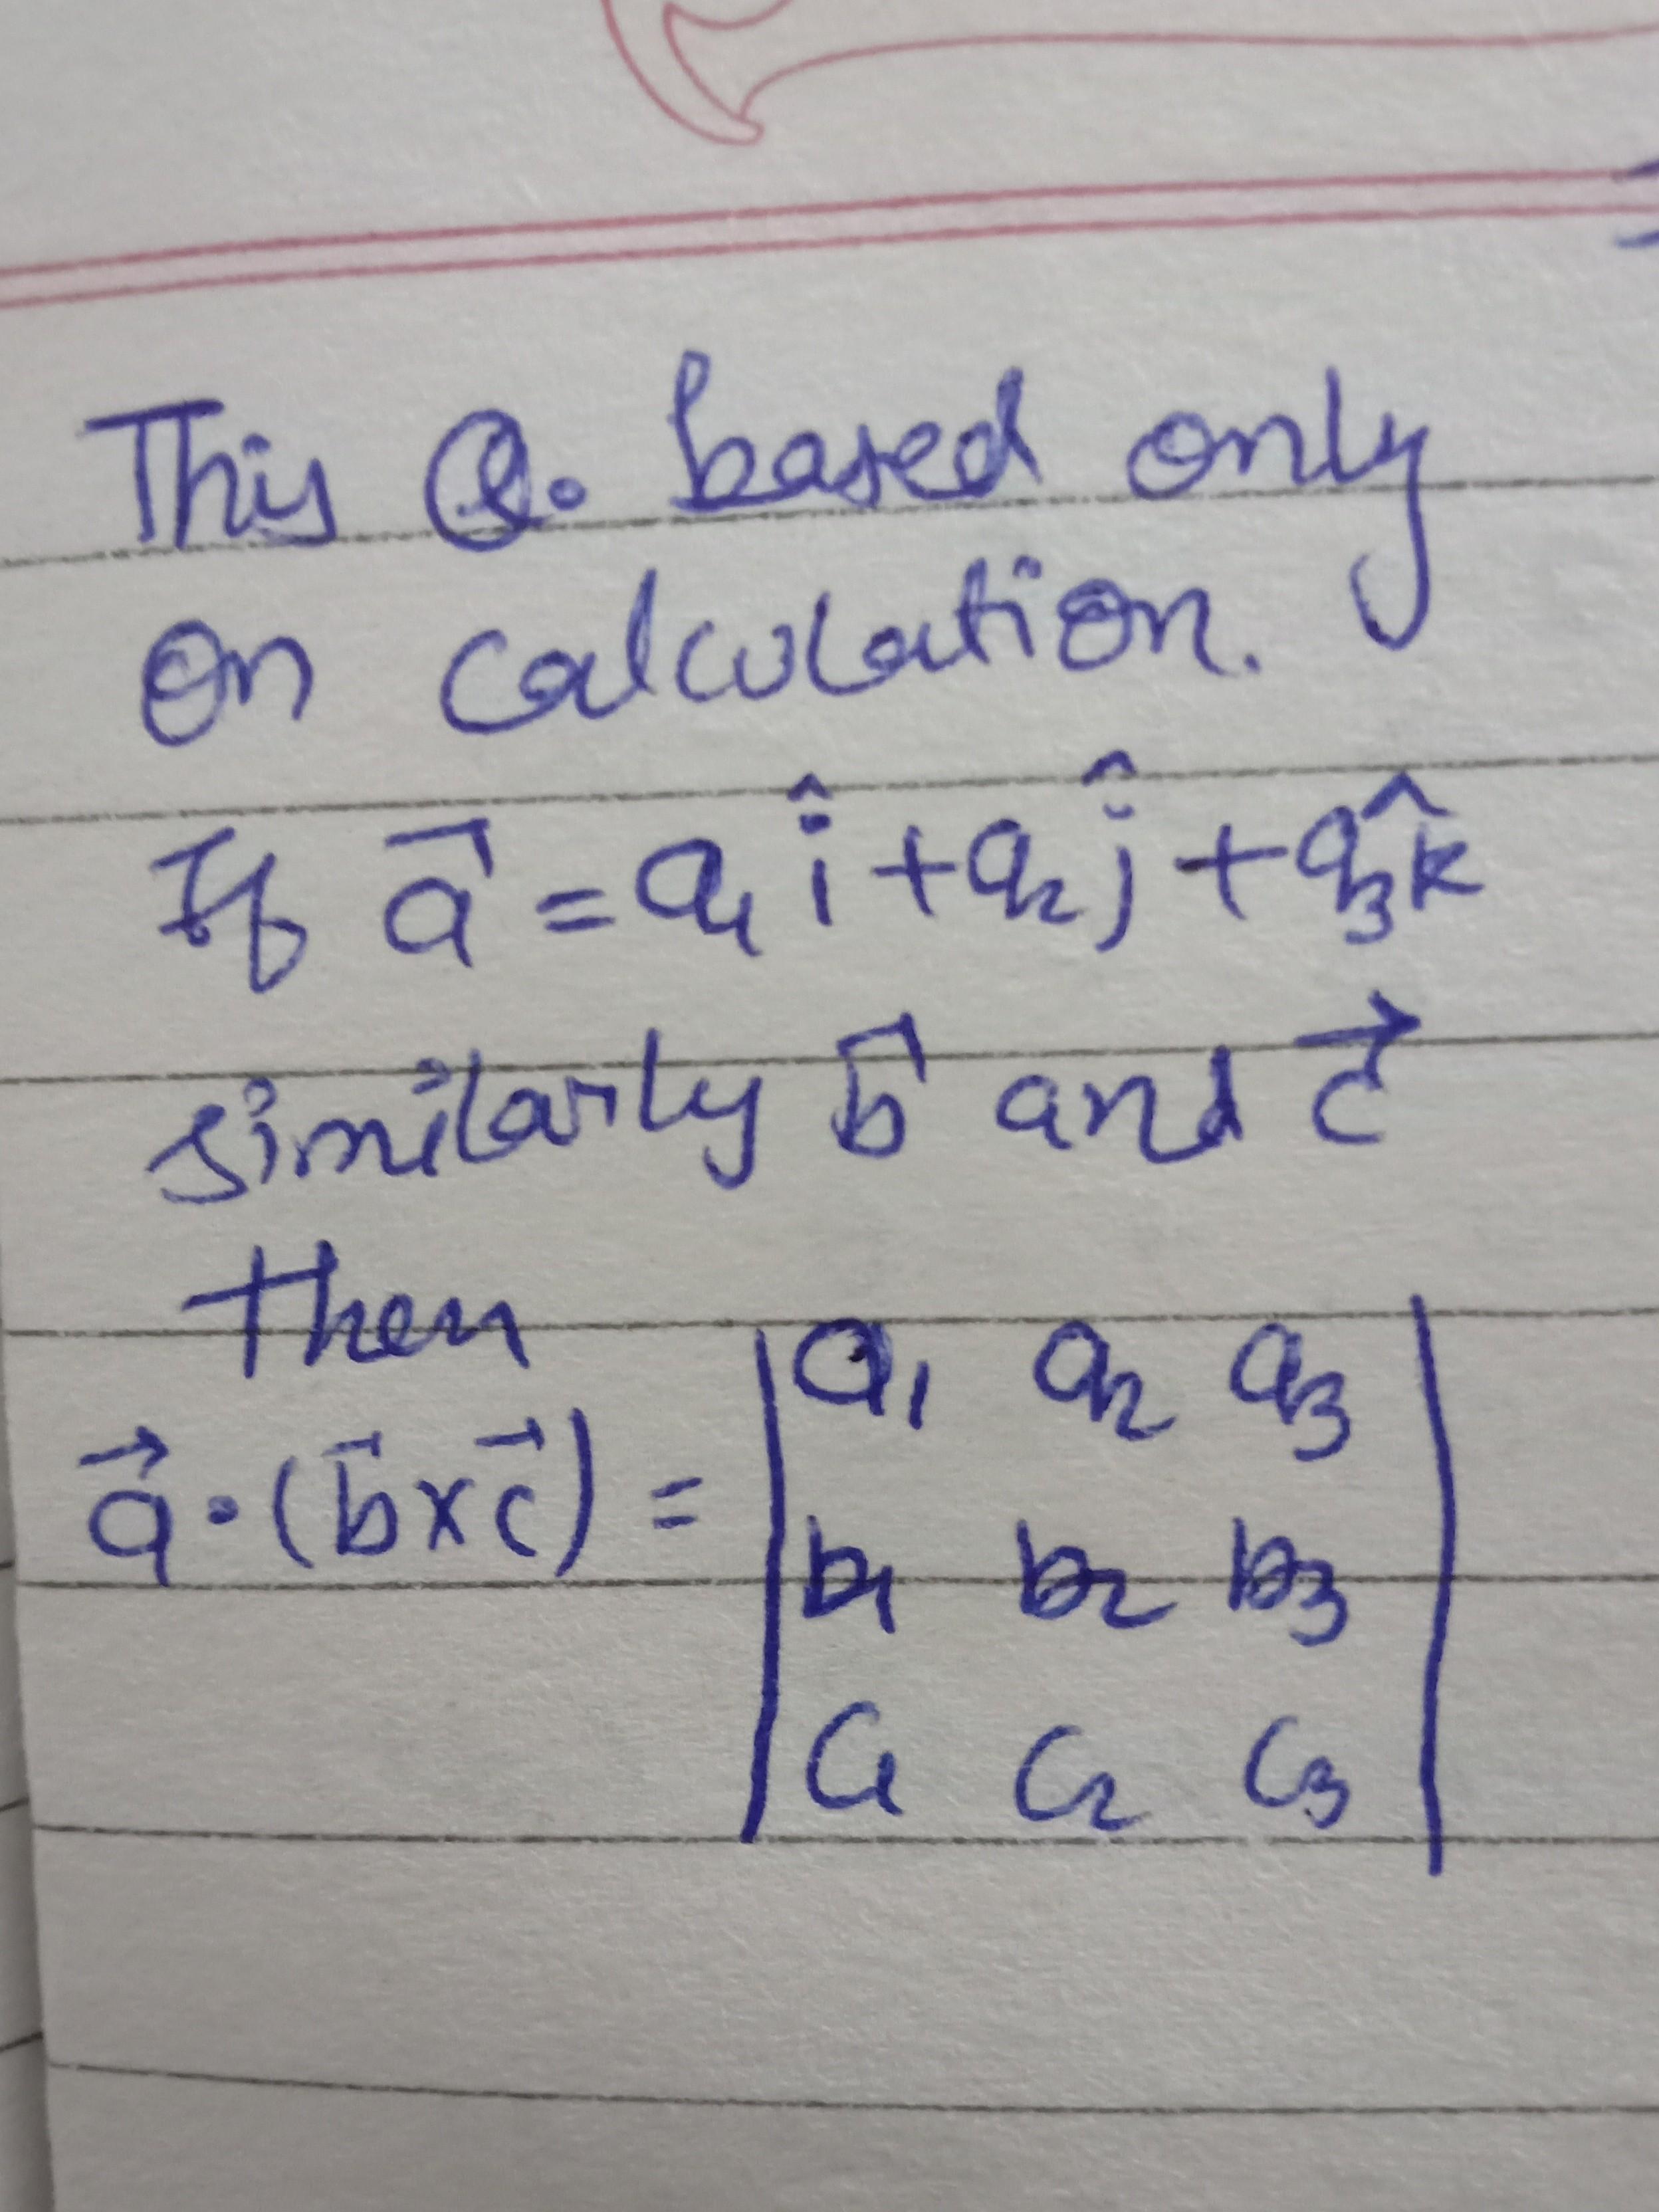 This Q. based only
on calculation.
If a⃗ = a₁ î + a₂ ĵ + a₃ k̂
similarly b⃗ and c⃗
then
a⃗ · (b⃗ × c⃗) = | a₁ a₂ a₃ |
| b₁ b₂ b₃ |
| c₁ c₂ c₃ |